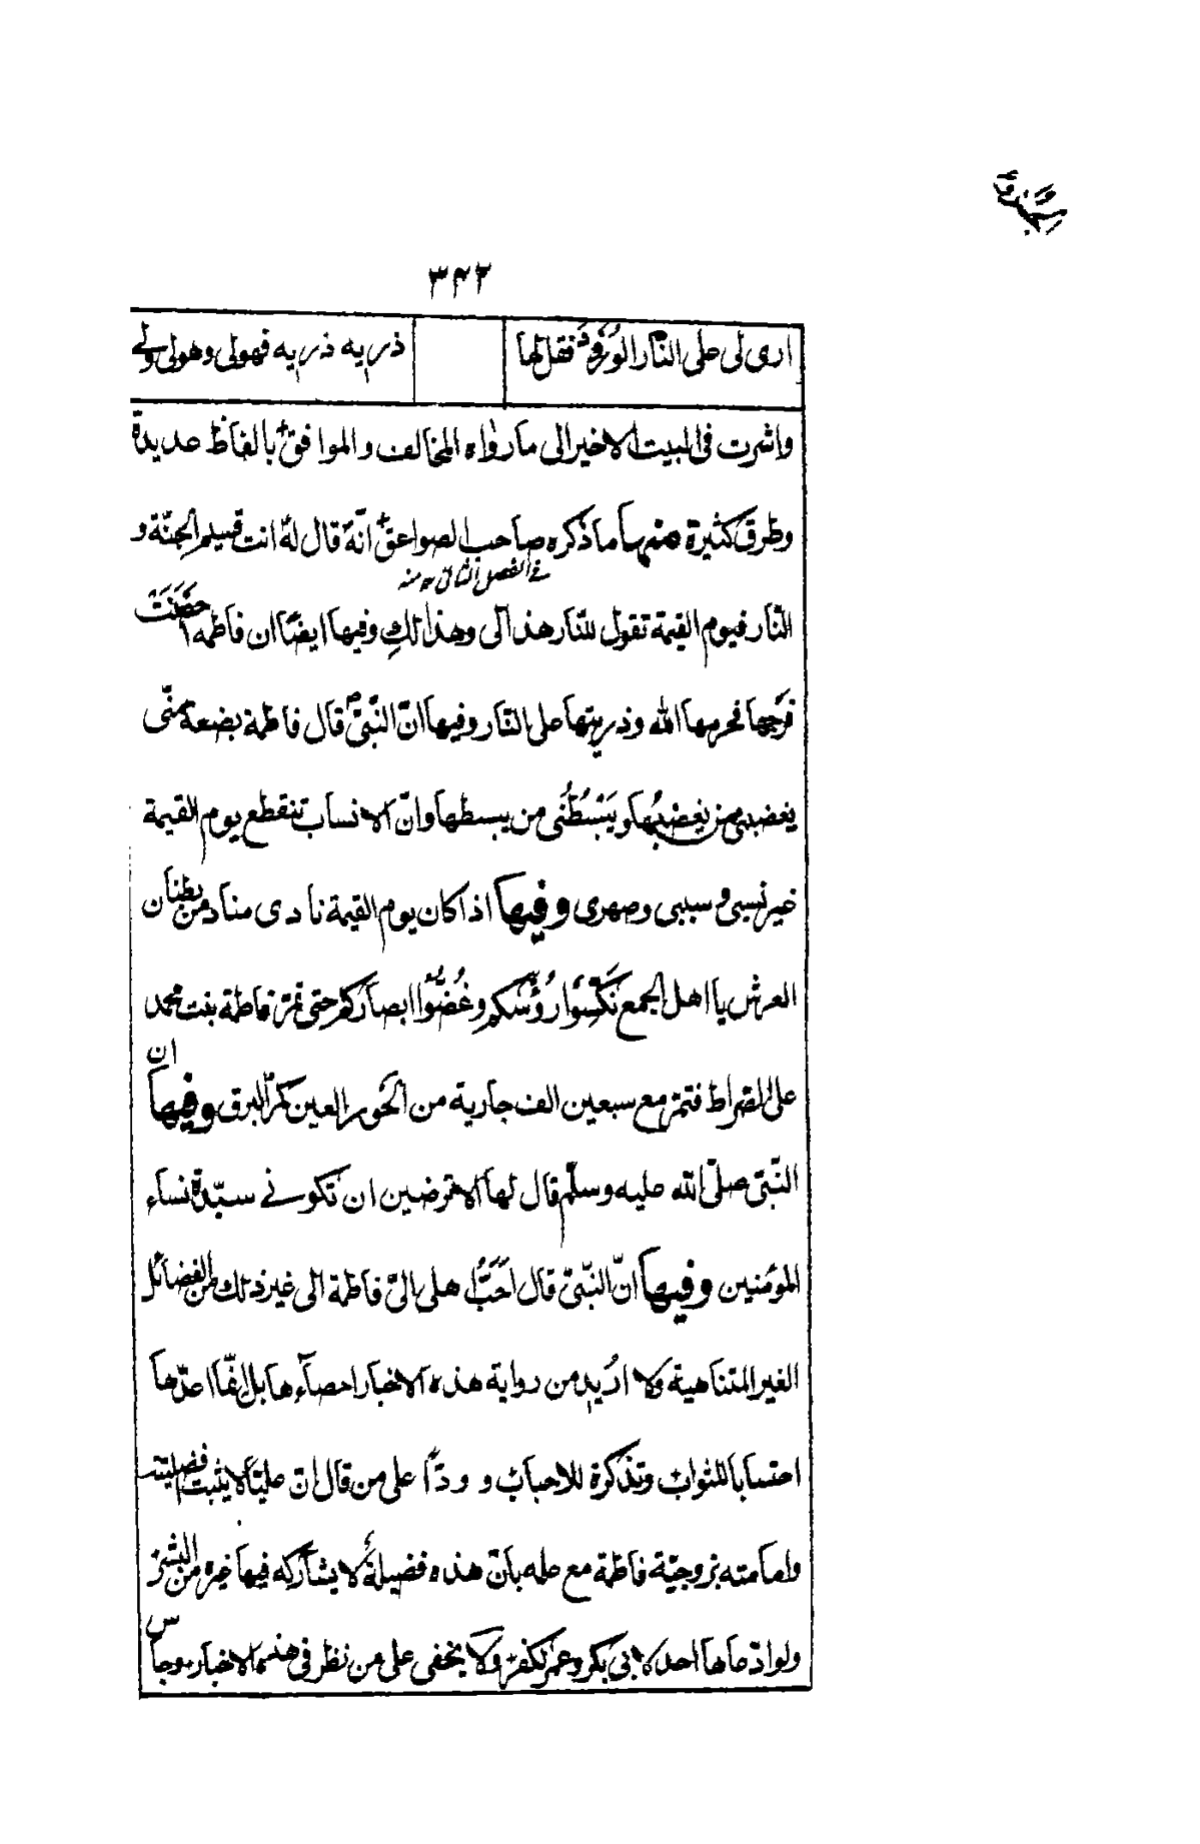 ۳۴۲
ارى لى على النار الورود فقل لها ذريه ذريه فهولى وهولى ولى
واشرت فى البيت الاخير الى ما رواه المخالف والموافق بالفاظ عديدة
وطرق كثيرة منها ما ذكره صاحب الصواعق انّه قال له انت قسيم الجنّة و
فى الفصل الثانى منه
النّار فيوم القيمة تقول للنّار هذا لى وهذا لكِ وفيها ايضًا ان فاطمه احصَنَت
فرجها فحرمها الله وذريتها على النّار وفيها انّ النّبىّ ص قال فاطمة بضعة منّى
يغضبنى من يغضبُها ويَبْسُطُنى من يبسطها وانّ الانساب تنقطع يوم القيمة
غير نسبى و سببى وصهرى وفيها اذا كان يوم القيمة نادى مناد من بطنان
العرش يا اهل الجمع نَكِّسُوا رُؤُسَكم وغُضُّوا ابصاركم حتى تمرّ فاطمة بنت محمد
على الصراط فتمرّ مع سبعين الف جارية من الحُور العين كمرّ البرق وفيها ان
النّبىّ صلّى الله عليه وسلّم قال لها الا ترضين ان تكونى سيّدة نساء
المؤمنين وفيها انّ النّبىّ قال اَحَبُّ اهلى الىّ فاطمة الى غير ذلك من الفضائل
الغير المتناهية ولا اُريد من رواية هذه الاخبار احصآءها بل انّما اعدّها
احتسابا للثواب وتذكرة للاحباب و ردّا على من قال انّ عليّا لا يثبت افضليته
وامامته بزوجيّة فاطمة مع علمه بانّ هذه فضيلة لا يشاركه فيها غيره من البشر
ولو ادّعاها احد لابى بكر وعمر لكفر ولا يخفى على من نظر فى هذه الاخبار وجاس